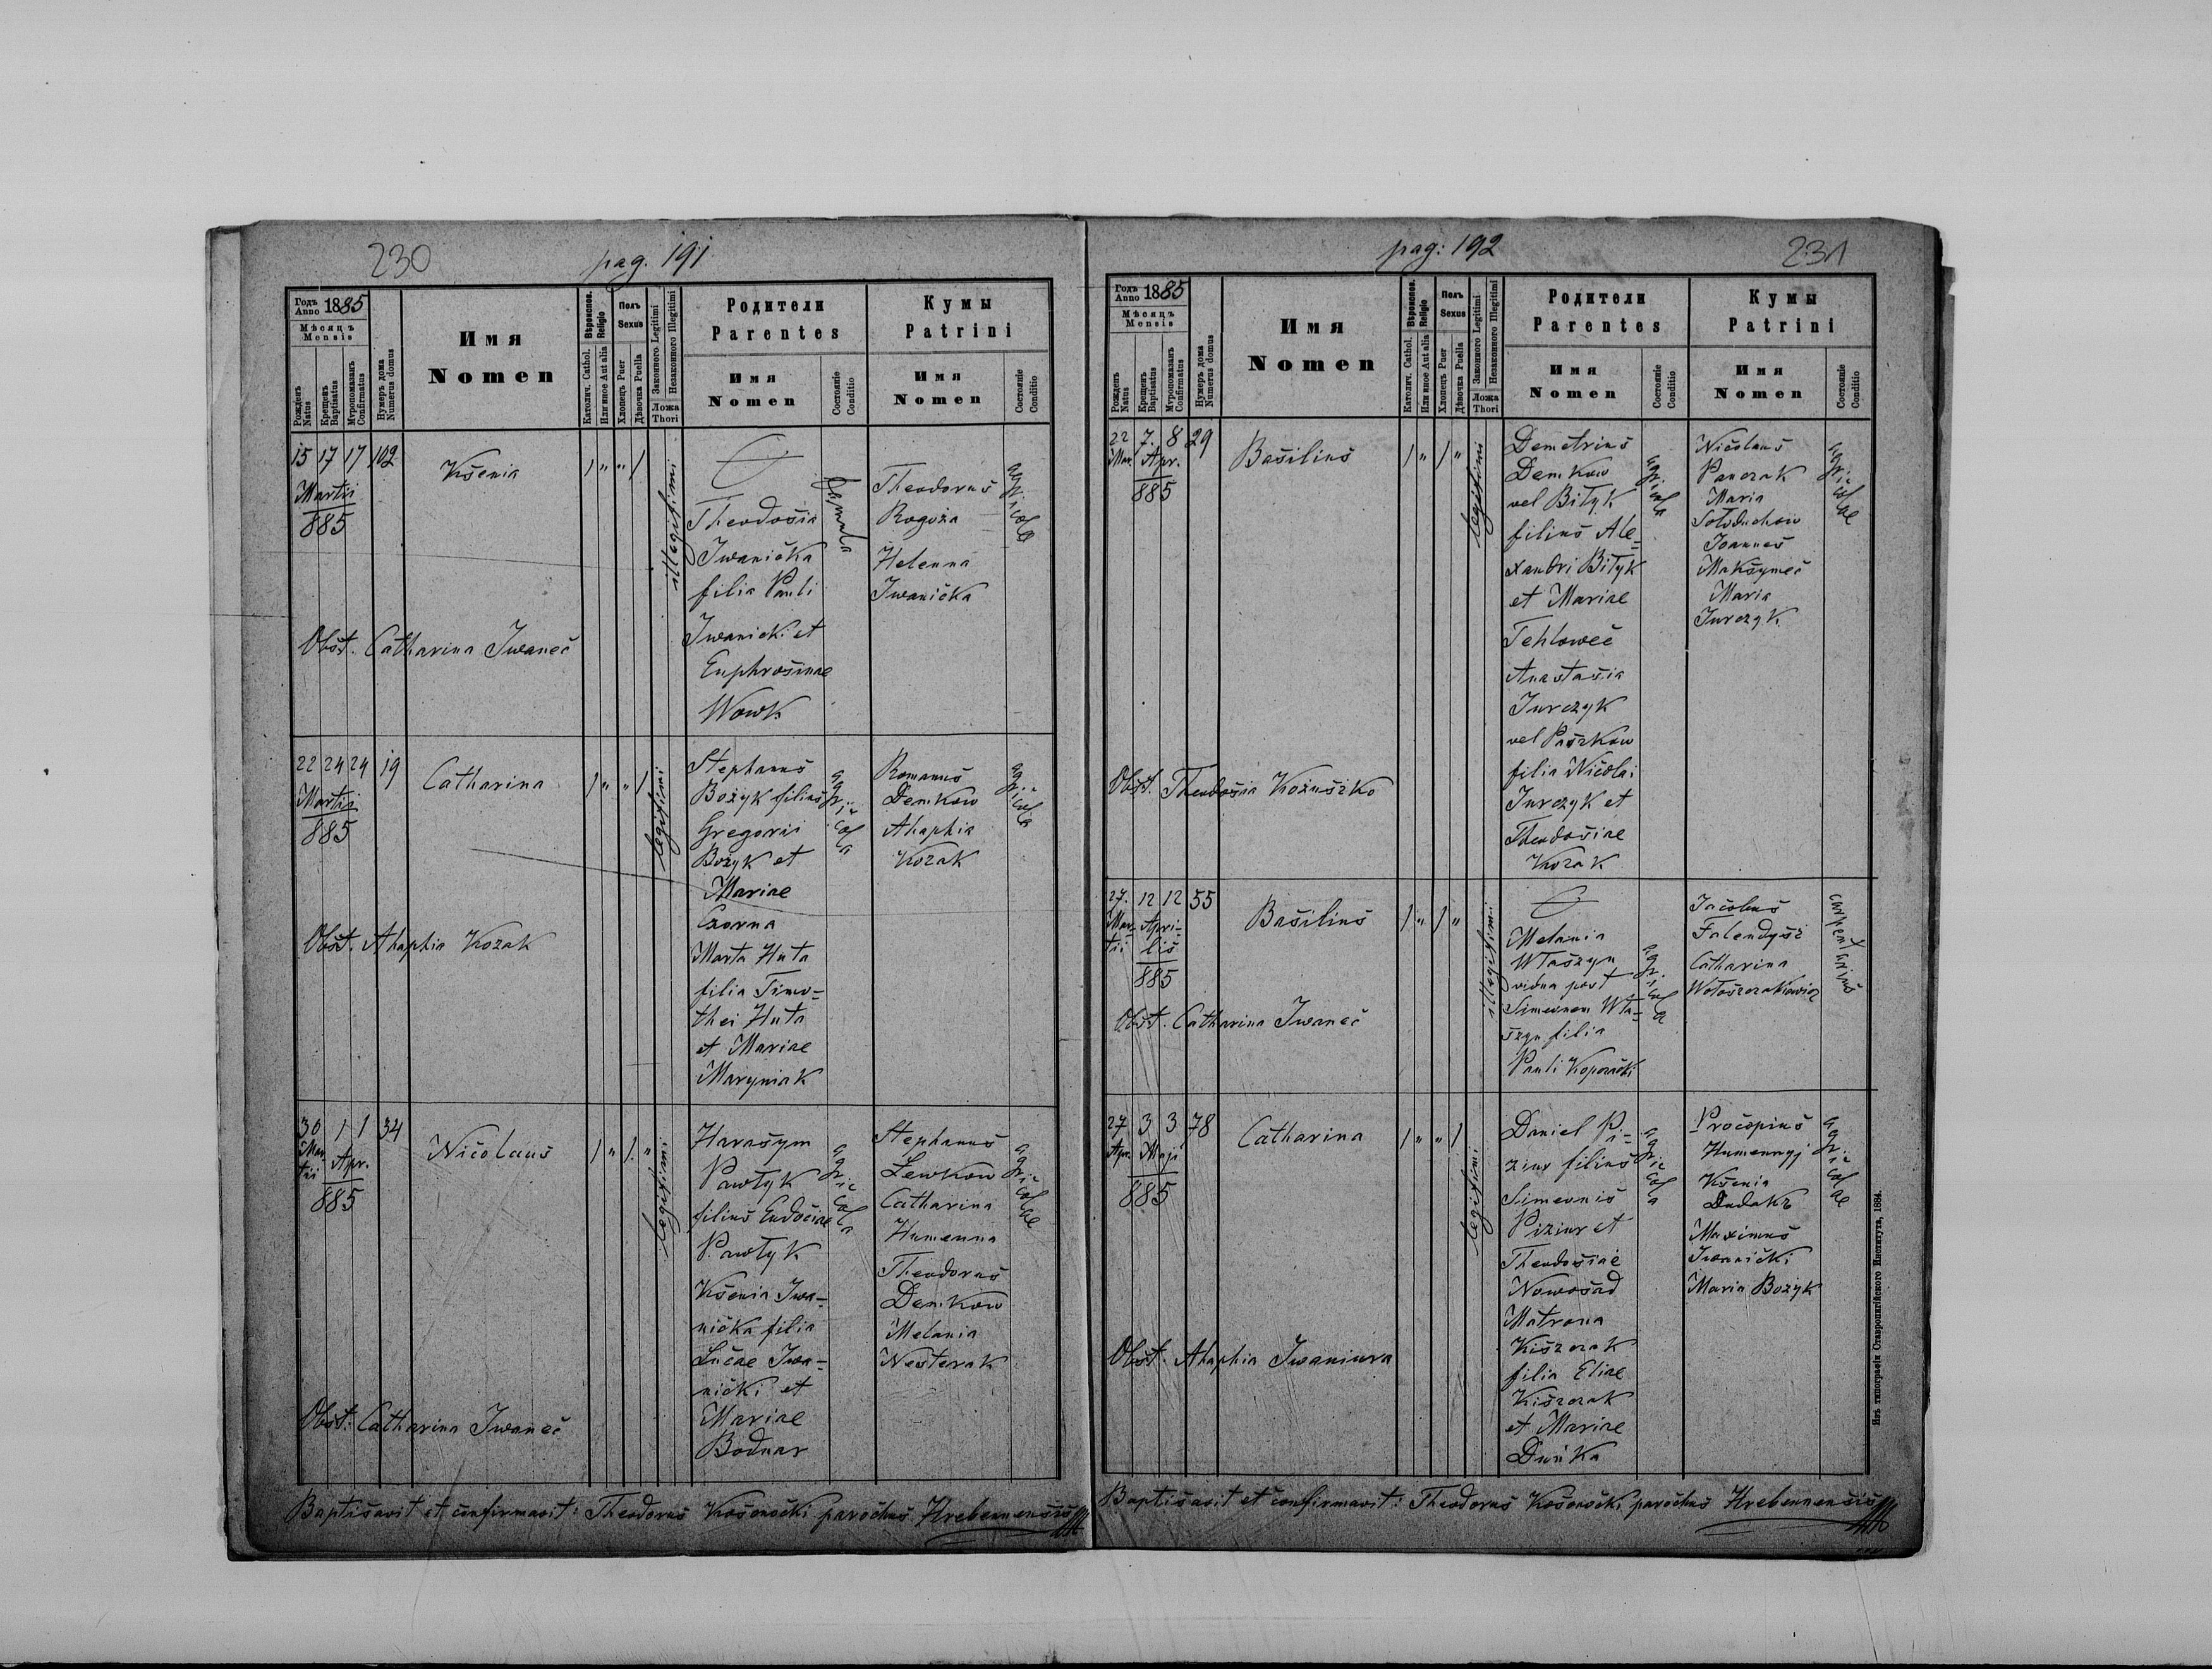 230
pag. 191
Годъ Anno 1885
Мѣсяцъ Mensis
Рожденъ Natus
Крещенъ Baptisatus
Мѵропомазанъ Confirmatus
Нумеръ дома Numerus domus
Имя
Nomen
Вѣроиспов. Religio
Католич. Cathol.
Или иное Aut alia
Полъ Sexus
Хлопецъ Puer
Дѣвочка Puella
Законного Legitimi
Незаконного Illegitimi
Ложа Thori
Родители
Parentes
Имя
Nomen
Состояніе Conditio
Кумы
Patrini
Имя
Nomen
Состояніе Conditio
15 17 17 102
Martii
885
Ksenia
1 " " 1
illegitimi
Theodosia
Iwanicka
filia Pauli
Iwanicki et
Euphrosinae
Wowk
famula
Theodorus
Rogoża
Helenna
Iwanicka
agricola
Obst. Catharina Iwanec
22 24 24 19
Martii
885
Catharina
1 " " 1
legitimi
Stephanus
Bożyk filius
Gregorii
Bożyk et
Mariae
Czorna
Marta Huta
filia Timo=
thei Huta
et Mariae
Maryniak
agricola
Romanus
Demkow
Ahaphia
Kozak
agricola
Obst. Ahaphia Kozak
30 1 1 34
Mar=
tii Apr.
885
Nicolaus
1 " 1 "
legitimi
Harasym
Pawłyk
filius Eudociae
Pawłyk
Ksenia Iwa=
nicka filia
Lucae Iwa=
nicki et
Mariae
Bodnar
agricola
Stephanus
Lewkow
Catharina
Humenna
Theodorus
Demkow
Melania
Nesterak
agricolae
Obst. Catharina Iwanec
Baptisavit et confirmavit: Theodorus Kosonocki parochus Hrebennensis
pag: 192
231
Годъ Anno 1885
Мѣсяцъ Mensis
Рожденъ Natus
Крещенъ Baptisatus
Мѵропомазанъ Confirmatus
Нумеръ дома Numerus domus
Имя
Nomen
Вѣроиспов. Religio
Католич. Cathol.
Или иное Aut alia
Полъ Sexus
Хлопецъ Puer
Дѣвочка Puella
Законного Legitimi
Незаконного Illegitimi
Ложа Thori
Родители
Parentes
Имя
Nomen
Состояніе Conditio
Кумы
Patrini
Имя
Nomen
Состояніе Conditio
22 7. 8 29
Mar. Apr.
885
Basilius
1 " 1 "
legitimi
Demetrius
Demkow
vel Bityk
filius Ale=
xandri Bityk
et Mariae
Tehlowec
Anastasia
Jurczyk
vel Paszkow
filia Nicolai
Jurczyk et
Theodosiae
Kozak
agricola
Nicolaus
Panczak
Maria
Sołoduchow
Joannes
Maksymec
Maria
Jurczyk
agricolae
Obst. Theodosia Kożuszko
27. 12 12 55
Mar= Apri=
tii lis
885
Basilius
1 " 1 "
illegitimi
Melania
Właszyn
vidua post
Simeonem Wła=
szyn filia
Pauli
agricola
Jacobus
Falendysz
Catharina
Wołoszczakiewicz
carpentarius
Obst. Catharina Iwanec
27 3 3 78
Apr. Maji
885
Catharina
1 " " 1
legitimi
Daniel Pi=
ziur filius
Simeonis
Piziur et
Theodosiae
Nowosad
Matrona
Kiszczak
filia Eliae
Kiszczak
et Mariae
Duńka
agricola
Procopius
Humennyj
Ksenia
Dudak
Maximus
Iwanicki
Maria Bożyk
agricolae
Obst. Ahaphia Iwaniura
Baptisavit et confirmavit: Theodorus Kosonocki parochus Hrebennensis
Изъ типографіи Ставропигійского Института, 1884.